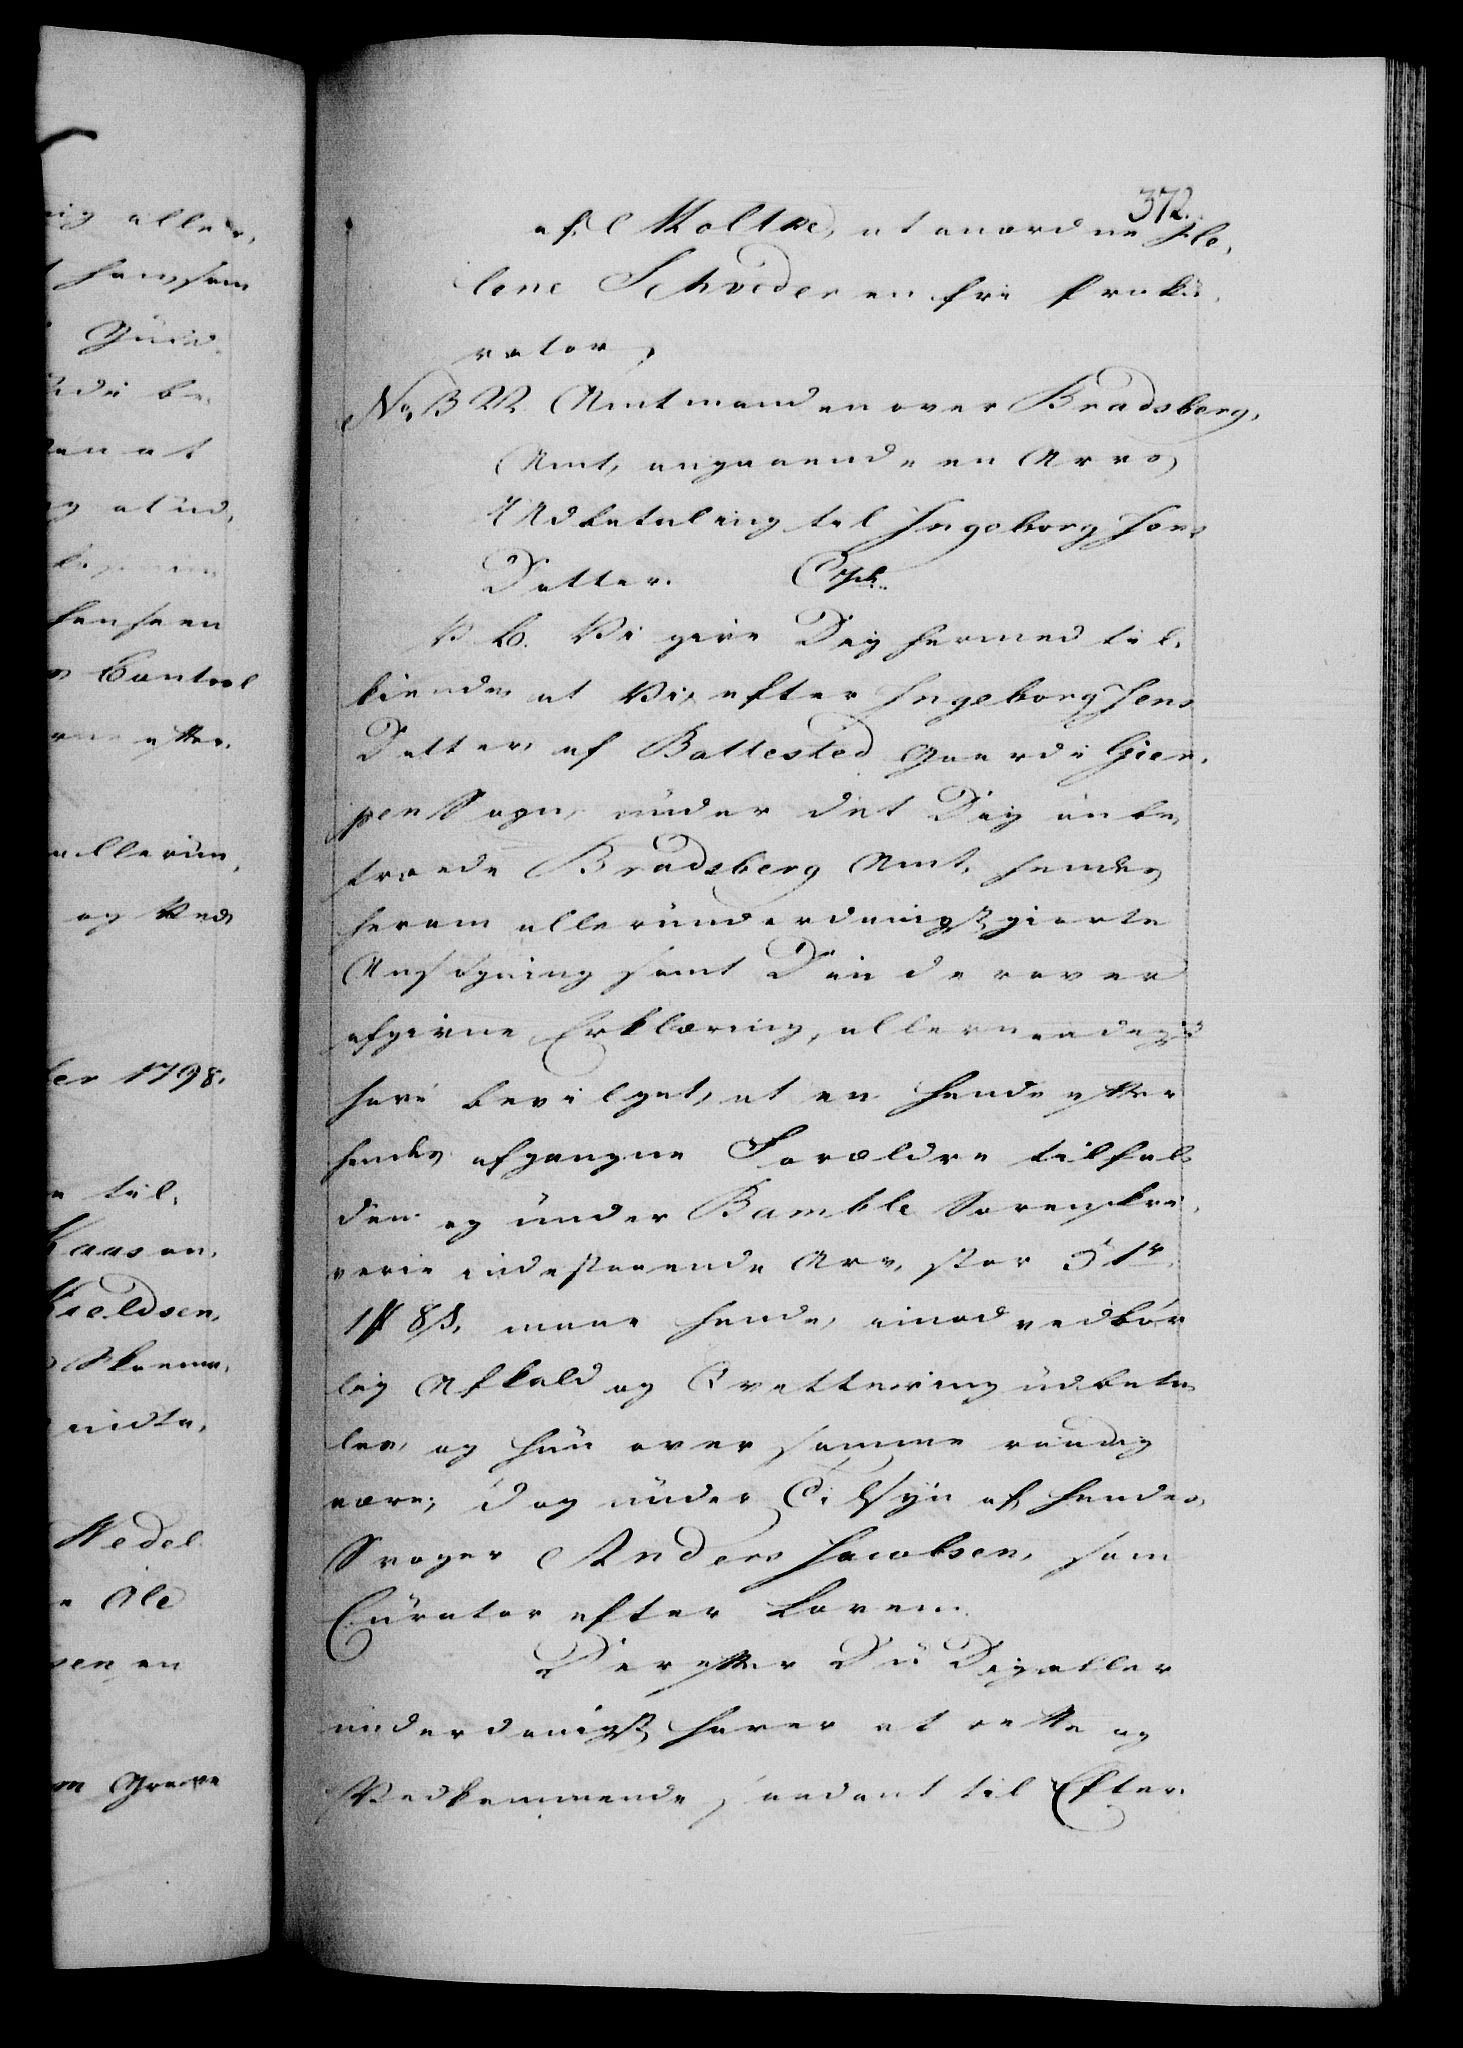 372.
af Moltke, at anordne He,
lene Schrøder en fri Proku,
rator,
No, 322 Amtmanden over Bradsberg,
Amt, angaaende en Arvs
Udbetaling til Ingeborg Jens
Datter. Cph.
V. G. Vi give Dig hermed til,
kiende, at Vi, efter Ingeborg Jens
Datter, af Ballested Gaard i Gier,
pen Sogn, under det Dig anbe,
troede Bradsberg Amt, hendes
herom allerunderdanigst giorte
Ansøgning samt Din derover
afgivne Erklæring, allernaadigst
have bevilget, at en hende efter
hendes afgangne Forældre tilfal,
den og under Bamble Sorenskri,
verie indestaaende Arv, stor 51 r
1 # 8 s, maae hende, imod vedbør
lig Afkald og Qvittering udbeta,
les, og hun over samme raadig
være, dog under Tilsyn af hendes
Svoger Anders Jacobsen, som
Curator efter Loven.
Derefter Du Dig aller
underdanigst haver at rette og
Vedkommende saadant til Efter,
eig aller,
ham, som
be,
en at
og alund,
henseen
Control
efter,
allerun,
og Ved
ber 1798.
til,
Kaas an,
Kieldsen,
midte,
Wedel
Ole
sen en
om Greve